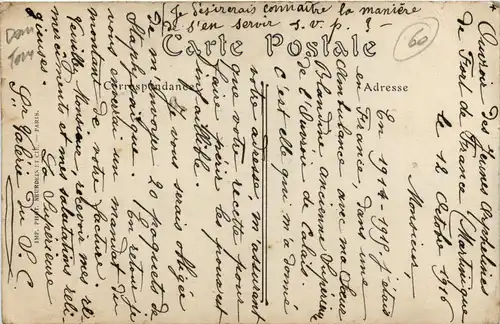 Je désirerais connaître la manière
de s'en servir s.v.p.?
Carte Postale
Correspondance
Adresse
60
Ouvroir des jeunes Orphelines
de Fort de France (Martinique
le 12 Octobre 1916
Monsieur,
En 1914-1915 j'étais
en France, dans une
Ambulance avec ma Sœur
Blandine ancienne Supérieure
de l'Ouvroir de Calais.
C'est elle que m'a donné
votre adresse, m'assurant
que votre recette pour
faire périr les poux est
infaillible.
Je vous serais obligée
de m'envoyer 20 paquets de
Staphysaigre. En retour je
vous enverrai un mandat du
montant de votre facture.
Veuillez Monsieur, recevoir mes re-
merciements et mes salutations reli-
gieuses. La Supérieure
Sr Valérie du S. C.
IMP. PHOT. NEURDEIN ET CIE. - PARIS.